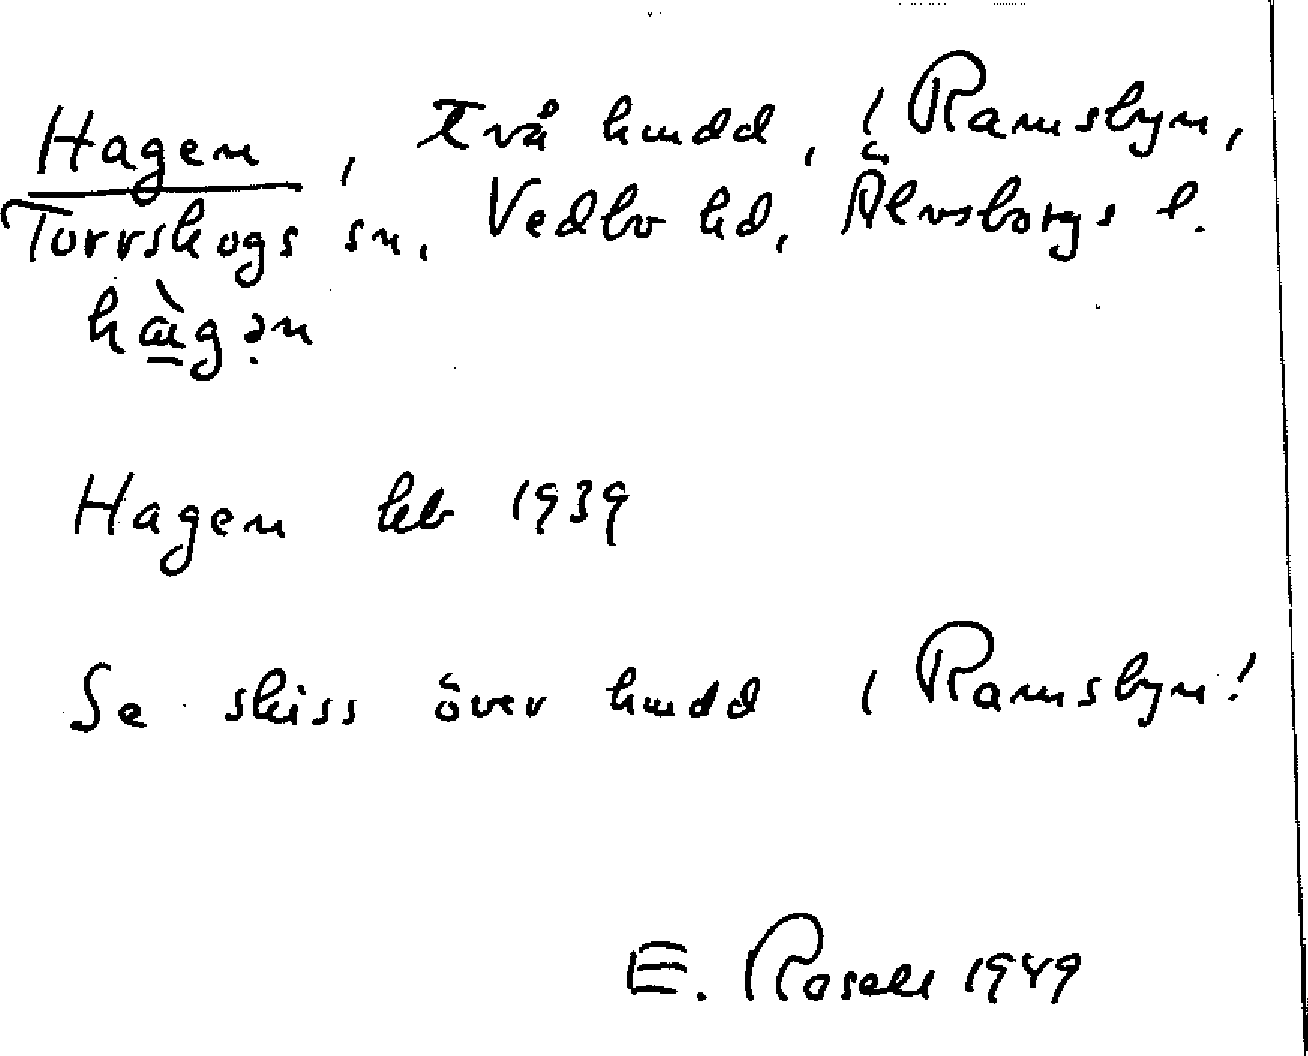 Hagen, två hmdd, i Ramsbyn,
Torrskogs sn, Vedbo hd, Älvsborgs l.
hàgən
Hagen kb 1939
Se skiss över hmdd i Ramsbyn!
E. Rosell 1949